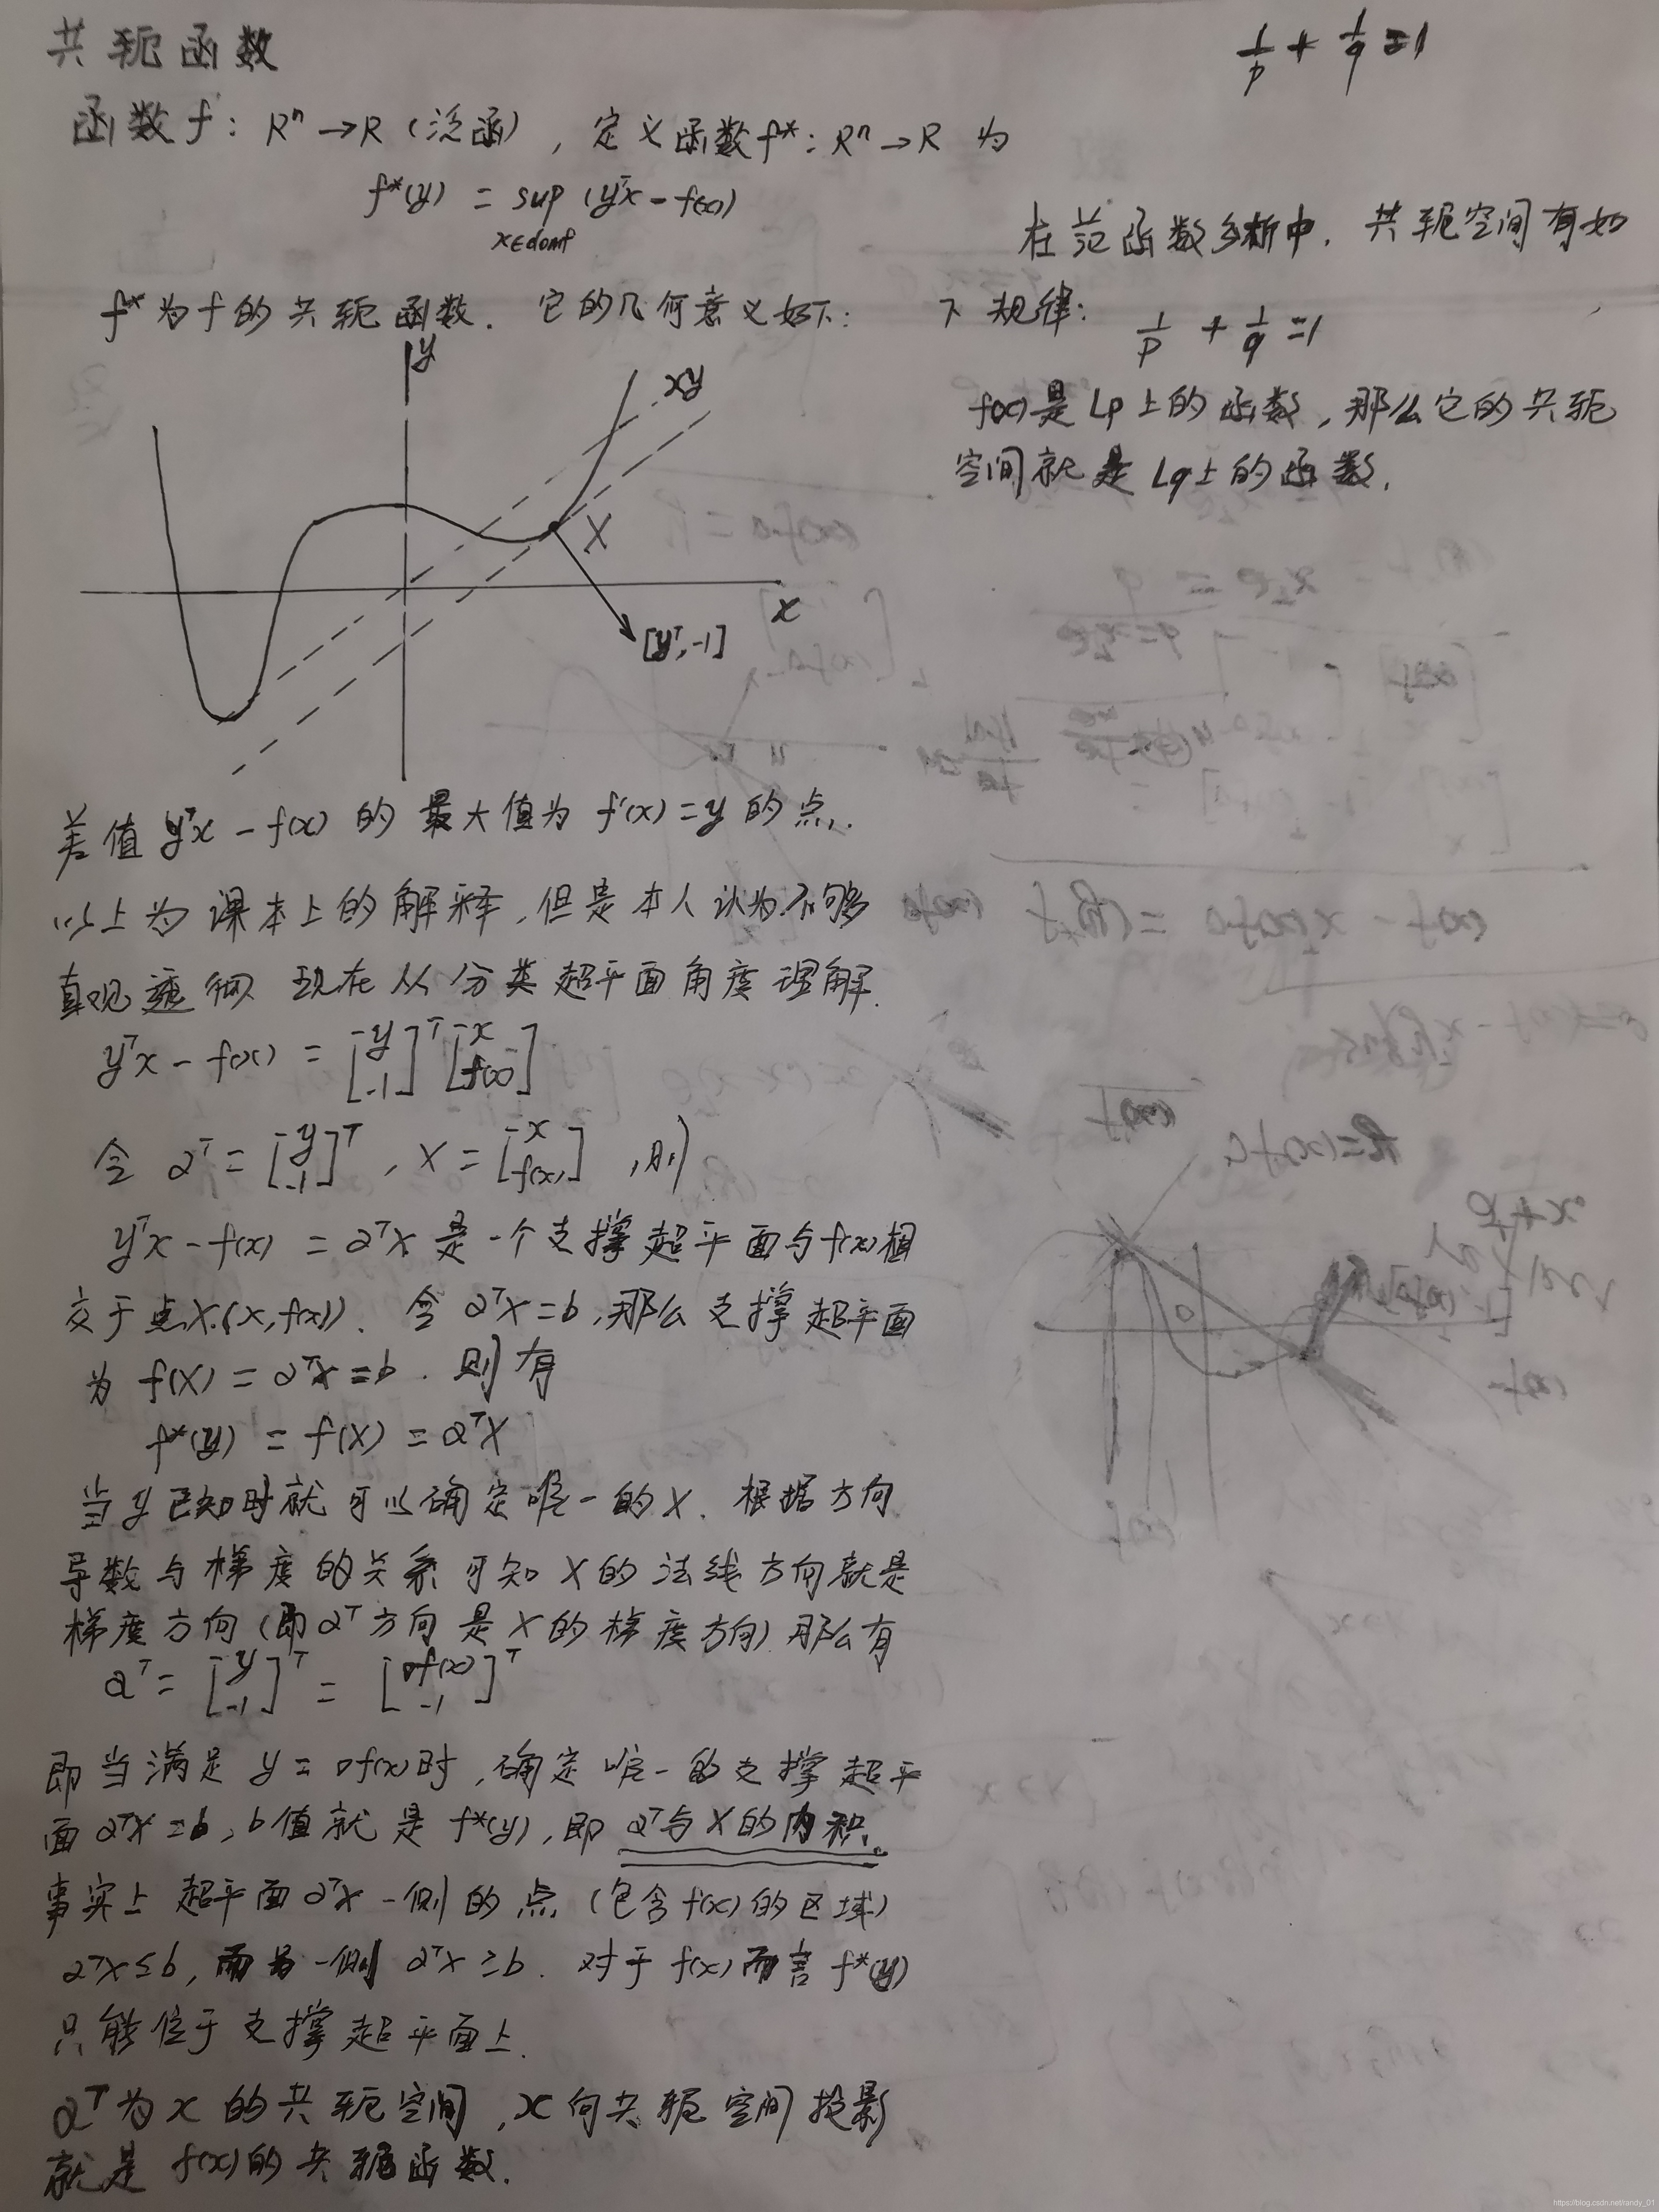 共轭函数
1/p + 1/q = 1
函数f: Rⁿ→R (泛函), 定义函数f*: Rⁿ→R 为
f*(y) = sup (yᵀx - f(x))
x∈domf
f*为f的共轭函数. 它的几何意义如下:
在范函数分析中, 共轭空间有如
下规律:
1/p + 1/q = 1
f(x)是Lp上的函数, 那么它的共轭
空间就是Lq上的函数.
y
xy
X
x
[yᵀ, -1]
差值 yᵀx - f(x) 的最大值为 f'(x) = y 的点.
以上为课本上的解释, 但是本人认为不够
直观透彻 现在从分类超平面角度理解.
yᵀx - f(x) = [y -1]ᵀ [x f(x)]
令 aᵀ = [y -1]ᵀ, X = [x f(x)], 则
yᵀx - f(x) = aᵀX 是一个支撑超平面与f(x)相
交于点X(x, f(x)). 令 aᵀX = b, 那么支撑超平面
为 f(X) = aᵀX = b. 则有
f*(y) = f(X) = aᵀX
当y已知时就可以确定唯一的X. 根据方向
导数与梯度的关系可知X的法线方向就是
梯度方向(即aᵀ方向是X的梯度方向) 那么有
aᵀ = [y -1]ᵀ = [∇f(x) -1]ᵀ
即当满足 y = ∇f(x)时, 确定唯一的支撑超平
面 aᵀX = b, b值就是 f*(y), 即 aᵀ与X的内积.
事实上 超平面aᵀX一侧的点 (包含f(x)的区域)
aᵀX ≤ b, 而另一侧 aᵀX ≥ b. 对于f(x)而言 f*(y)
只能位于支撑超平面上.
aᵀ为x的共轭空间, x向共轭空间投影
就是f(x)的共轭函数.
https://blog.csdn.net/randy_01